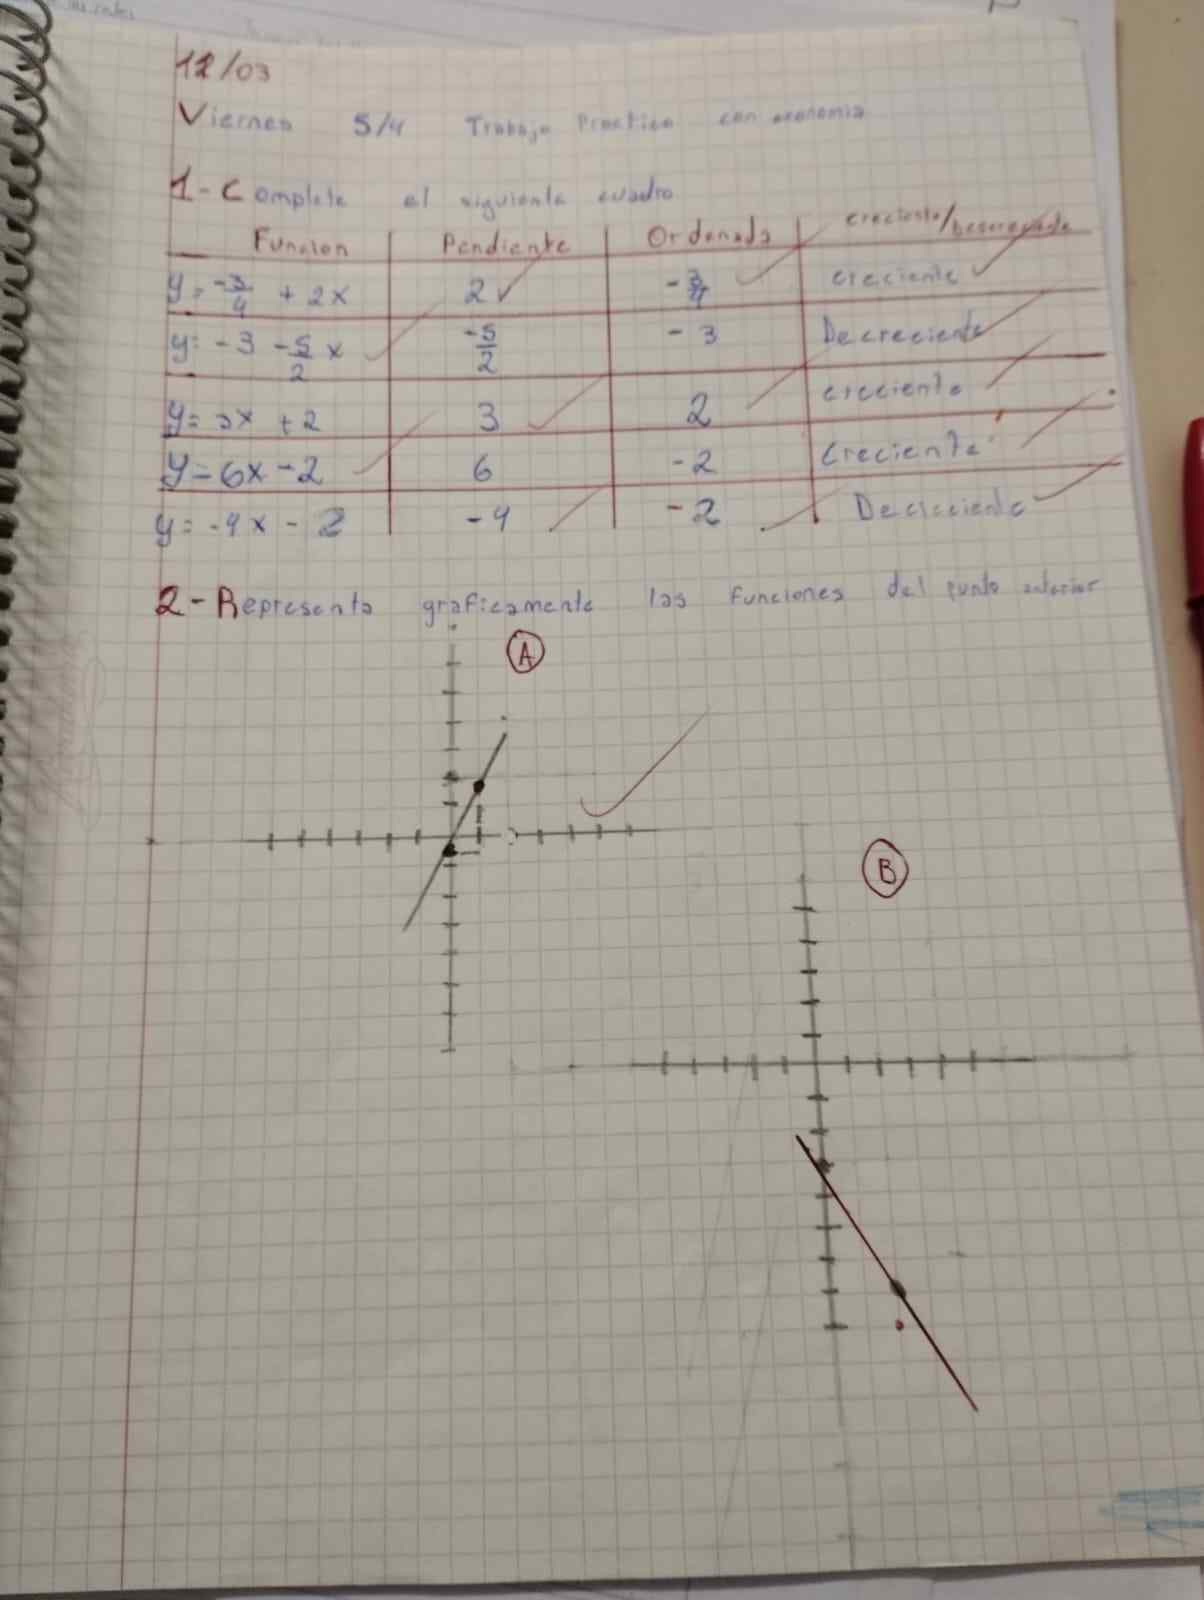 12/03
Viernes 5/4 Trabajo Practico con economia
1-Complete el siguiente cuadro
Funcion Pendiente Ordenada creciente/Decreciente
y= -3/4 + 2x 2 -3/4 creciente
y= -3 -5/2 x -5/2 -3 Decreciente
y= 3x +2 3 2 creciente
y=6x-2 6 -2 Creciente
y= -4x - 2 -4 -2 Dececiente
2-Representa graficamente las funciones del punto anterior
A
B